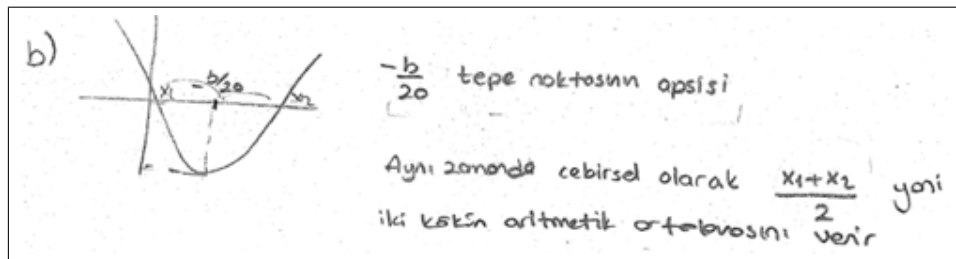 b)
x1 b/20 x2
-b/20 tepe noktasının apsisi
Aynı zamanda cebirsel olarak x1+x2/2 yani
iki kökün aritmetik ortalamasını verir